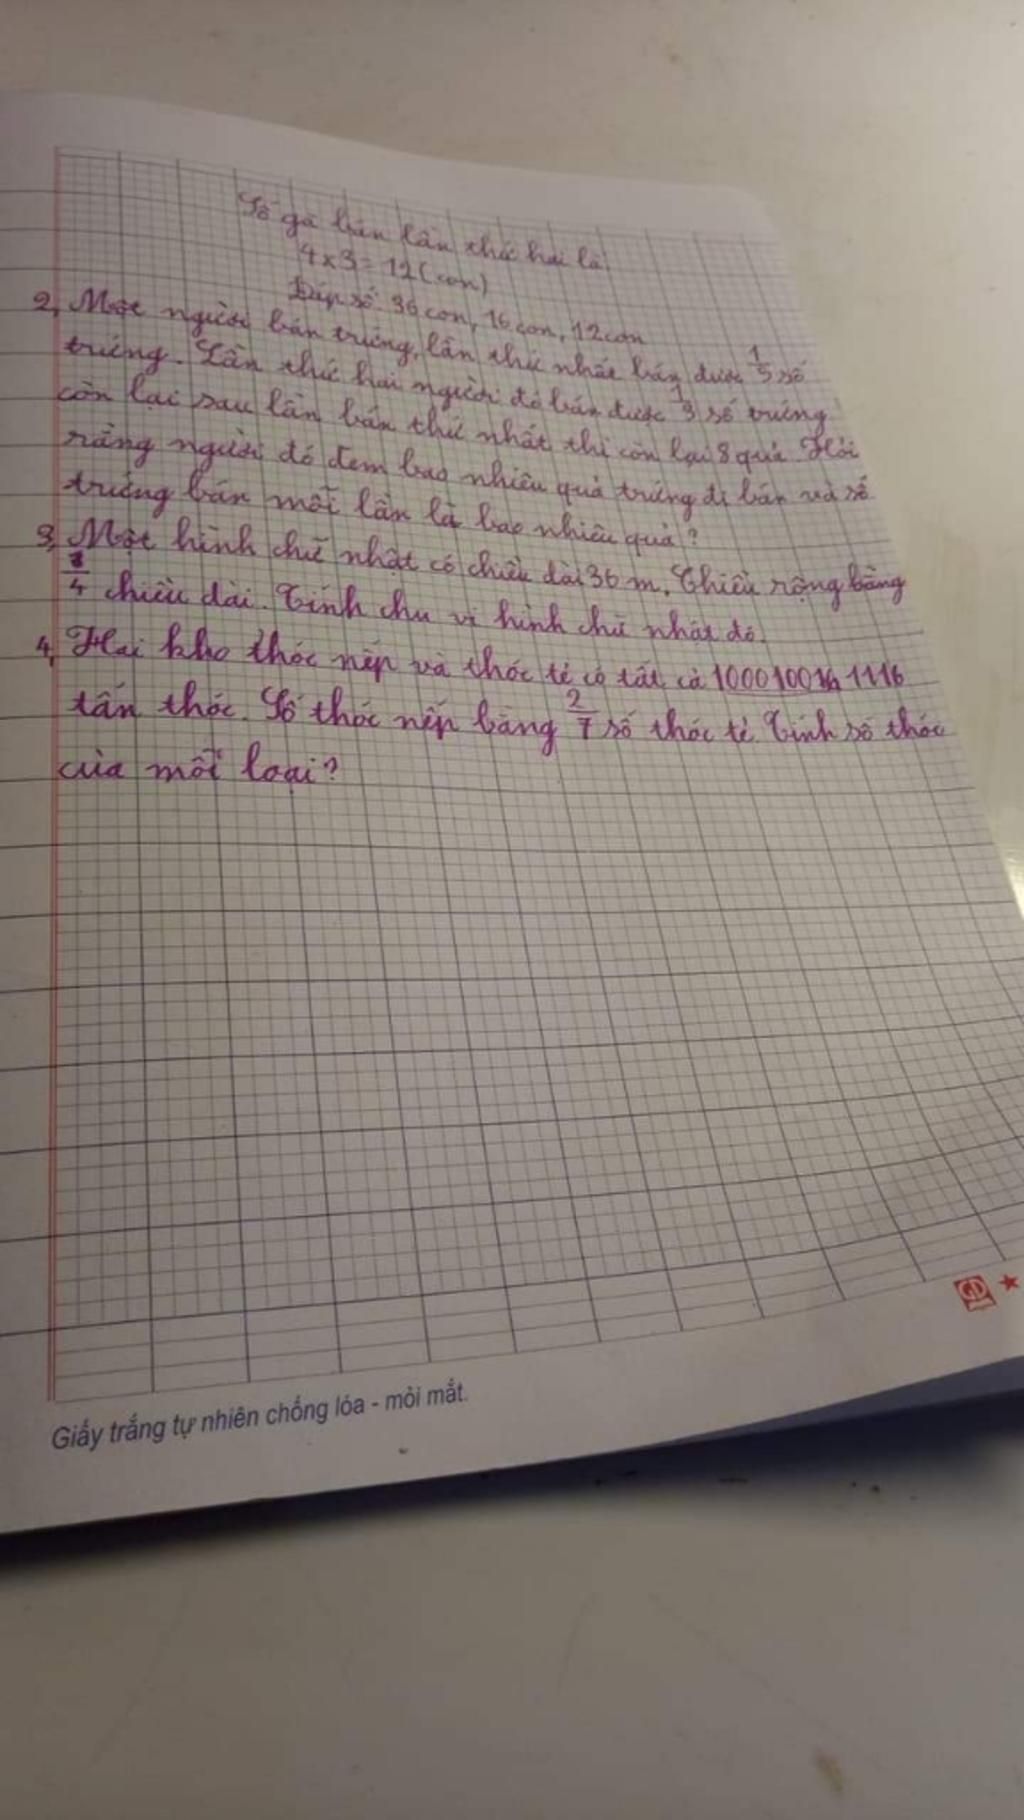 Số gà bán lần thứ hai là
4 x 3 = 12 (con)
Đáp số: 36 con, 16 con, 12 con
2, Một người bán trứng, lần thứ nhất bán được 1/5 số
trứng. Lần thứ hai người đó bán được 1/3 số trứng
còn lại sau lần bán thứ nhất thì còn lại 8 quả. Hỏi
rằng người đó đem bao nhiêu quả trứng đi bán và số
trứng bán mỗi lần là bao nhiêu quả?
3, Một hình chữ nhật có chiều dài 36 m. Chiều rộng bằng
/4 chiều dài. Tính chu vi hình chữ nhật đó.
4, Hai kho thóc nếp và thóc tẻ có tất cả 1116
tấn thóc. Số thóc nếp bằng 2/7 số thóc tẻ. Tính số thóc
của mỗi loại?
GD
Giấy trắng tự nhiên chống lóa - mỏi mắt.